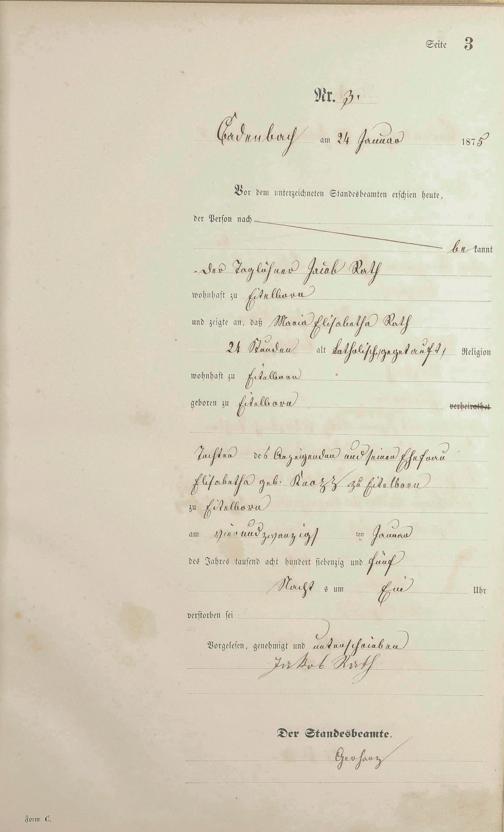 Seite 3
Nr. 3.
Cadenbach am 24 Januar 1875
Vor dem unterzeichneten Standesbeamten erschien heute,
der Person nach
be kannt
der Taglöhner Jacob Rath
wohnhaft zu Eitelborn
und zeigte an, daß Maria Elisabetha Rath
24 Stunden alt katholisch, getauft, Religion
wohnhaft zu Eitelborn
geboren zu Eitelborn verheirathet
Tochter des Anzeigenden und seiner Ehefrau
Elisabetha geb. zu Eitelborn
zu Eitelborn
am vierundzwanzigs ten Januar
des Jahres tausend acht hundert siebenzig und fünf
Nacht s um Ein Uhr
verstorben sei
Vorgelesen, genehmigt und unterschrieben
Jakob Rath
Der Standesbeamte.
Gerharz
Form C.